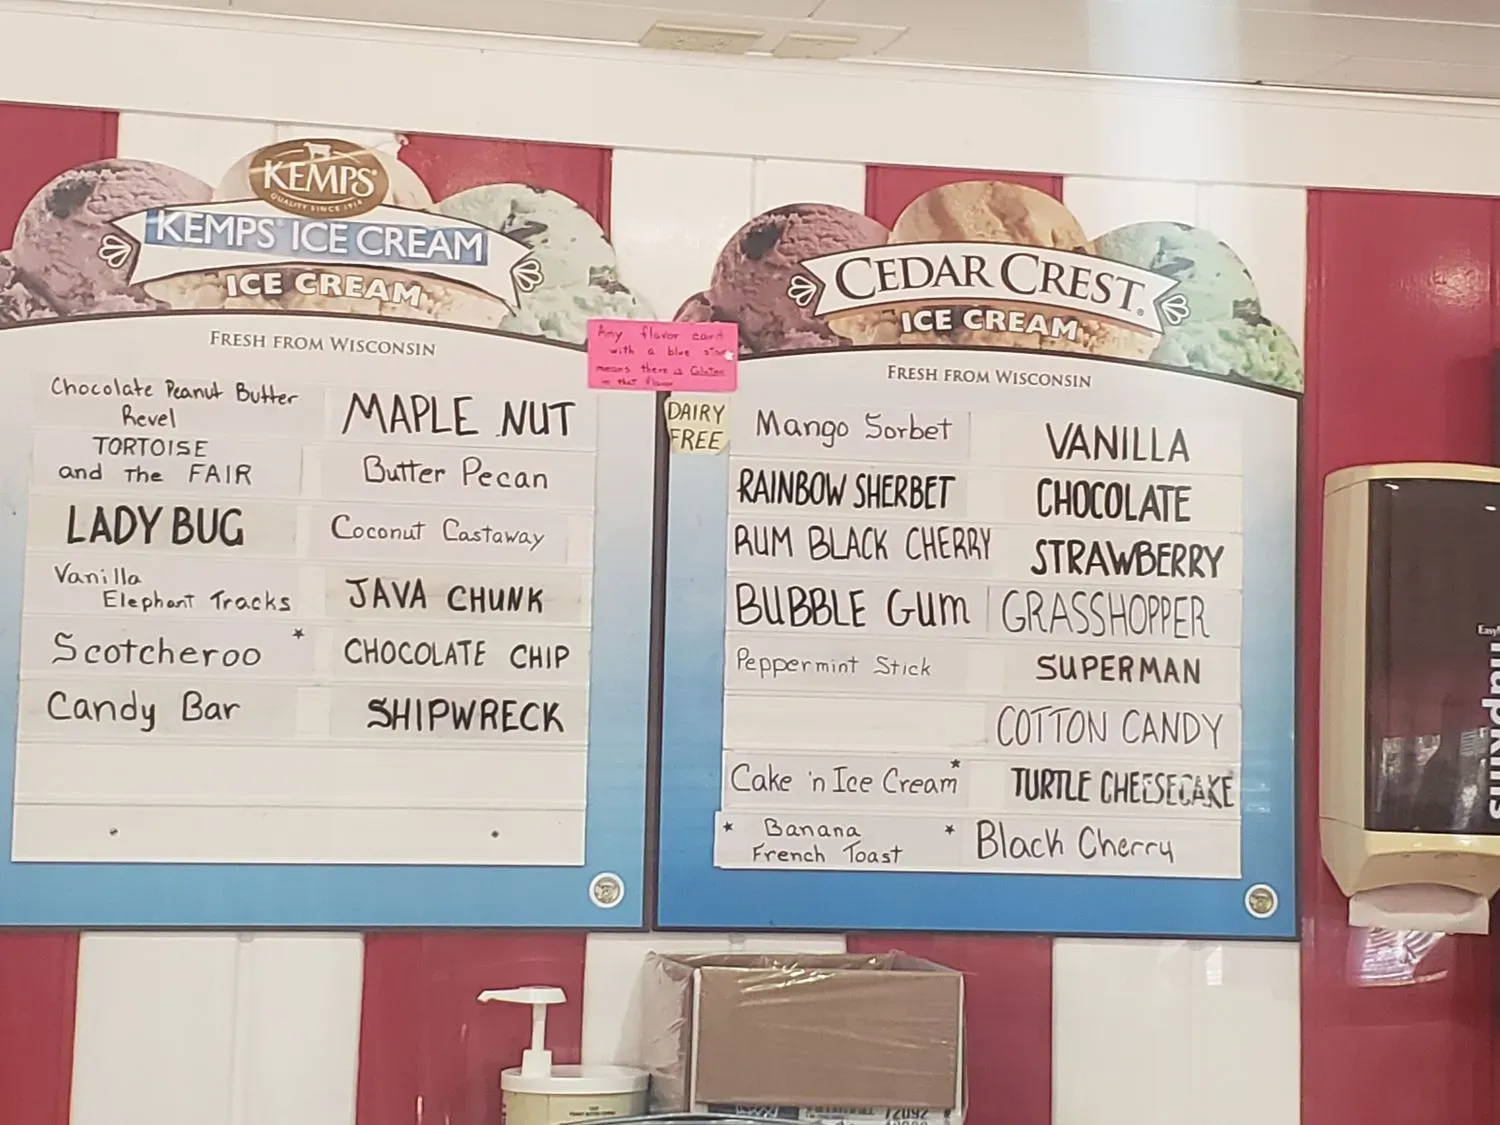 KEMPS
QUALITY SINCE 1914
KEMPS ICE CREAM
ICE CREAM
FRESH FROM WISCONSIN
Chocolate Peanut Butter
Revel
TORTOISE
and The FAIR
LADY BUG
Vanilla
Elephant Tracks
Scotcheroo *
Candy Bar
MAPLE NUT
Butter Pecan
Coconut Castaway
JAVA CHUNK
CHOCOLATE CHIP
SHIPWRECK
Any flavor card
with a blue star
means there is Gluten
in that flavor
CEDAR CREST®
ICE CREAM
FRESH FROM WISCONSIN
DAIRY
FREE
Mango Sorbet
RAINBOW SHERBET
RUM BLACK CHERRY
BUBBLE GUM
Peppermint Stick
Cake 'n Ice Cream *
* Banana *
French Toast
VANILLA
CHOCOLATE
STRAWBERRY
GRASSHOPPER
SUPERMAN
COTTON CANDY
TURTLE CHEESECAKE
Black Cherry
napkins